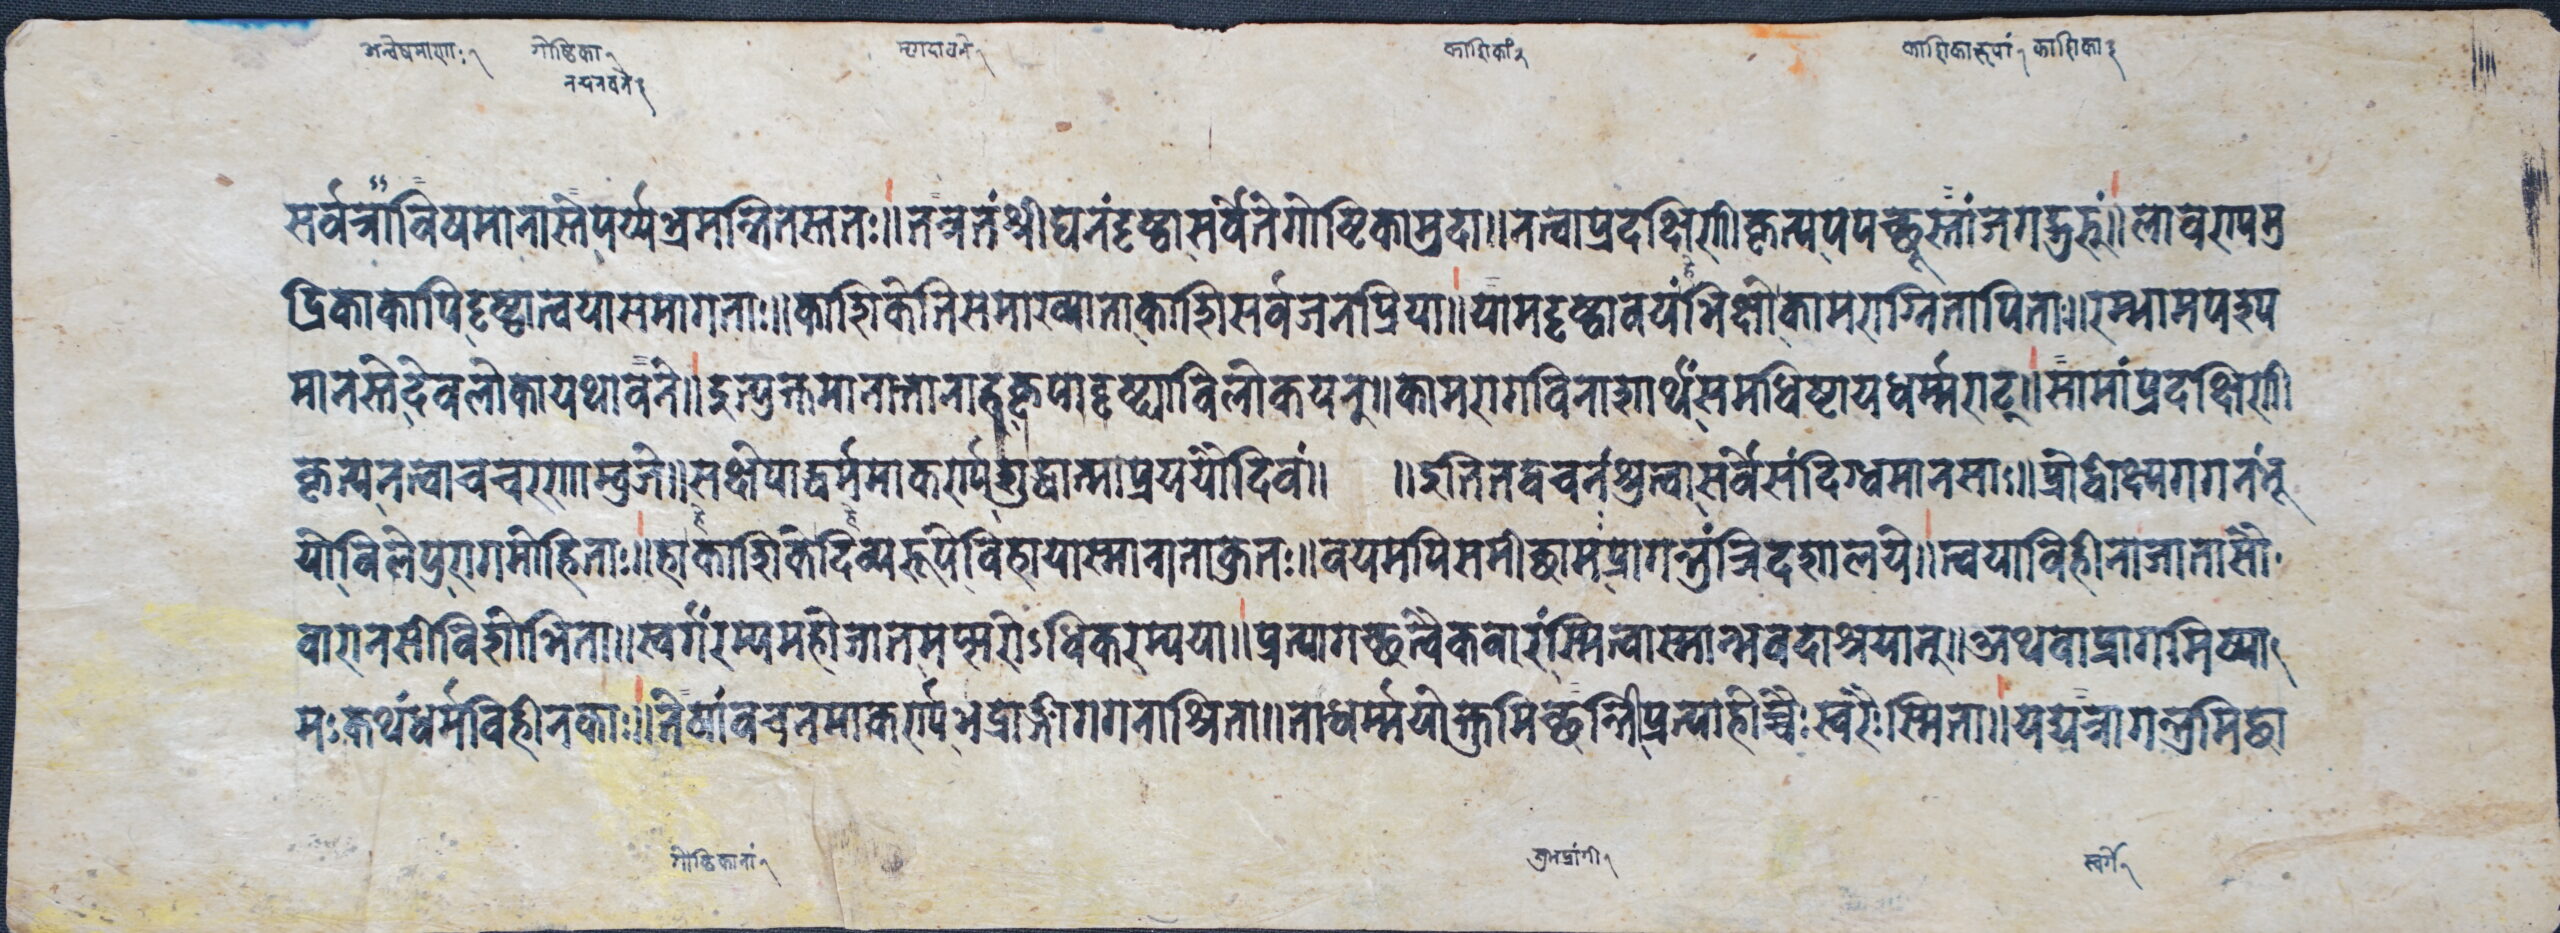 अन्वेषमाणाः१ गोष्ठिका१ मृगदावने१ काशिकां२ काशिकारूपां१ काशिका३
नन्दनवने३
सर्वत्रान्वेषमानास्ते पर्य्यभ्रमन्नितस्ततः॥ तत्र तं श्रीघनं दृष्ट्वा सर्वे ते गोष्टिका मुदा॥ नत्वा प्रदक्षिणीकृत्य पप्रच्छुस्तां जगद्गुरुं॥ लावण्यमु
द्रिका कापि दृष्टा त्वया समागताः॥ काशिकेति समाख्याता काशि सर्वजनप्रिया॥ यामदृष्ट्वा वयं भिक्षो कामराग्नितापिताः॥ रम्भामपश्य
मानस्ते देवलोका यथा वने॥ इत्युक्तमानान्तानार्हत्कृपादृष्ट्या विलोकयन्॥ कामरागविनाशार्थं समधिष्टाय धर्म्मराट्॥ सा मां प्रदक्षिणी
कृत्य नत्वा च चरणाम्बुजे॥ संक्षेपाद्धर्ममाकर्ण्य शुद्धात्मा प्रययौ दिवं॥ ॥ इति तद्वचनं श्रुत्वा सर्वे संदिग्धमानसाः॥ प्रोद्वीक्ष्य गगनं भू
यो विलेपुरागमोहिताः॥ हा काशिके दिव्यरूपे विहायास्मान् गता कुतः॥ वयमपि समीच्छामः प्रागन्तुं त्रिदशालये॥ त्वया विहीना जातासौ
वारानसी विशोभिता॥ स्वर्गं रम्यमहो जातमप्सरोऽधिकरम्यया॥ प्रत्यागच्छ त्वैकवारं स्मित्वास्मान्भवदाश्रयान्॥ अथवा प्रागमिष्या
मः कथं धर्मविहीनकाः॥ तेषां वचनमाकर्ण्य भद्राङ्गी गगनाश्रिता॥ तान्धर्म्मयोक्तुमिच्छन्ती प्रत्याहोच्चैः स्वरैः स्मिता॥ यद्यत्रागन्तुमिच्छा
गोष्ठिकानां१ शुभद्रांगी१ स्वर्गे१